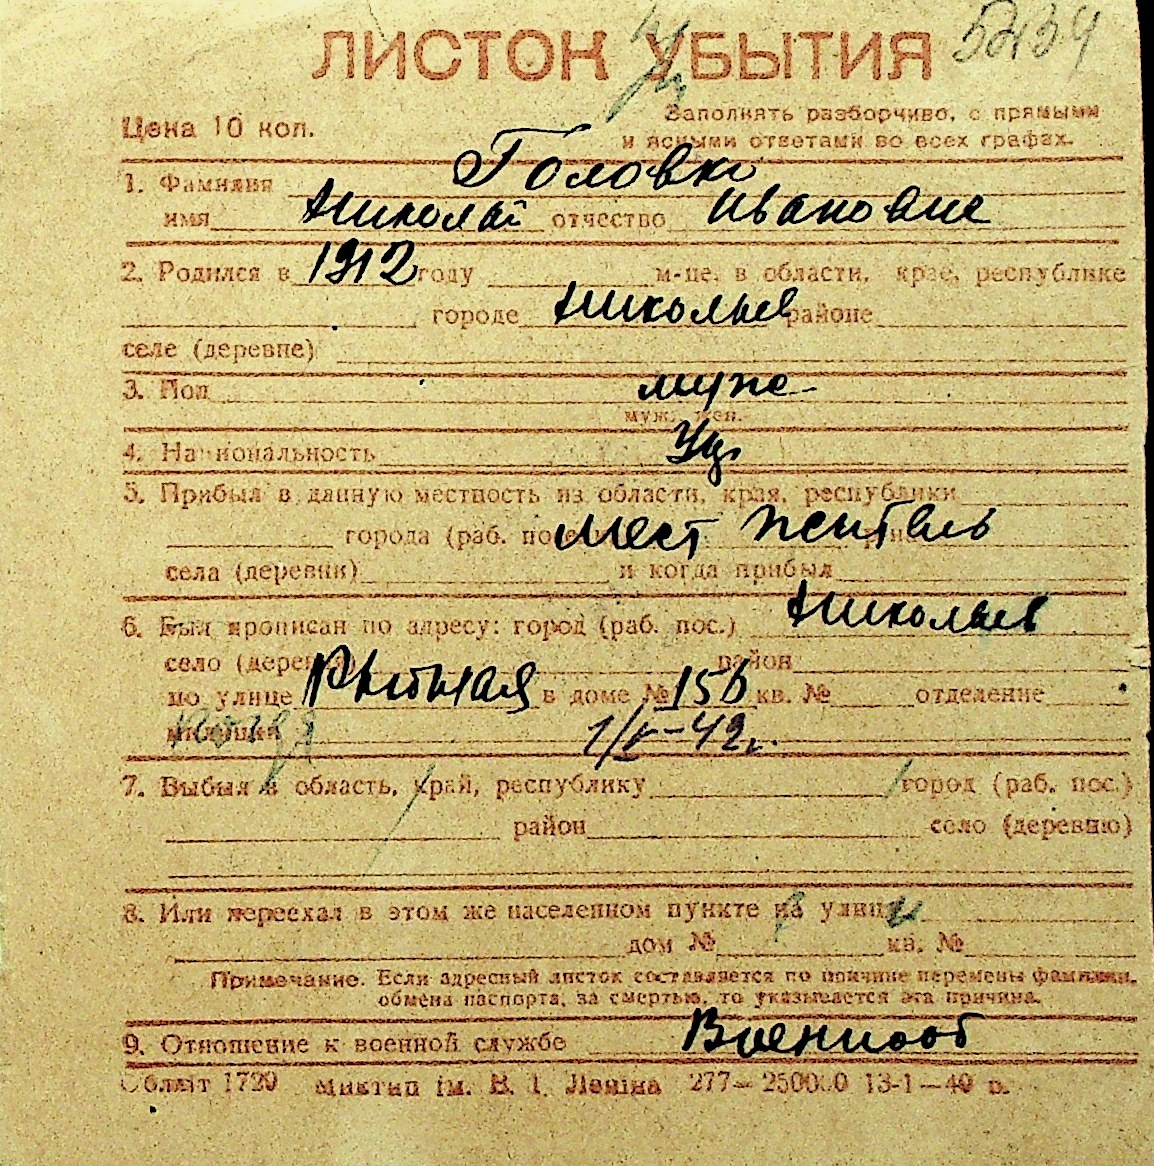 ЛИСТОК УБЫТИЯ
Цена 10 коп.
Заполнять разборчиво, с прямыми
и ясными ответами во всех графах.
1. Фамилия Головко
имя Николай отчество Иванович
2. Родился в 1912 году м-це, в области, крае, республике
городе Николаев районе
селе (деревне)
3. Пол муж
муж. жен.
4. Национальность
5. Прибыл в данную местность из области, края, республики
города (раб. Мест житель
села (деревни) и когда прибыл
6. Был прописан по адресу: город (раб. пос.) Николаев
село (деревня) район
по улице Рыбная в доме № 156 кв. № отделение
милиции 1/V-42г.
7. Выбыл в область, край, республику город (раб. пос.)
район село (деревню)
8. Или переехал в этом же населенном пункте на улицу
дом № кв. №
Примечание. Если адресный листок составляется по причине перемены фамилии,
обмена паспорта, за смертью, то указывается эта причина.
9. Отношение к военной службе Военнооб
Обллит 1720 Миктип ім. В. І. Леніна 277— 250000 13-1—40 р.